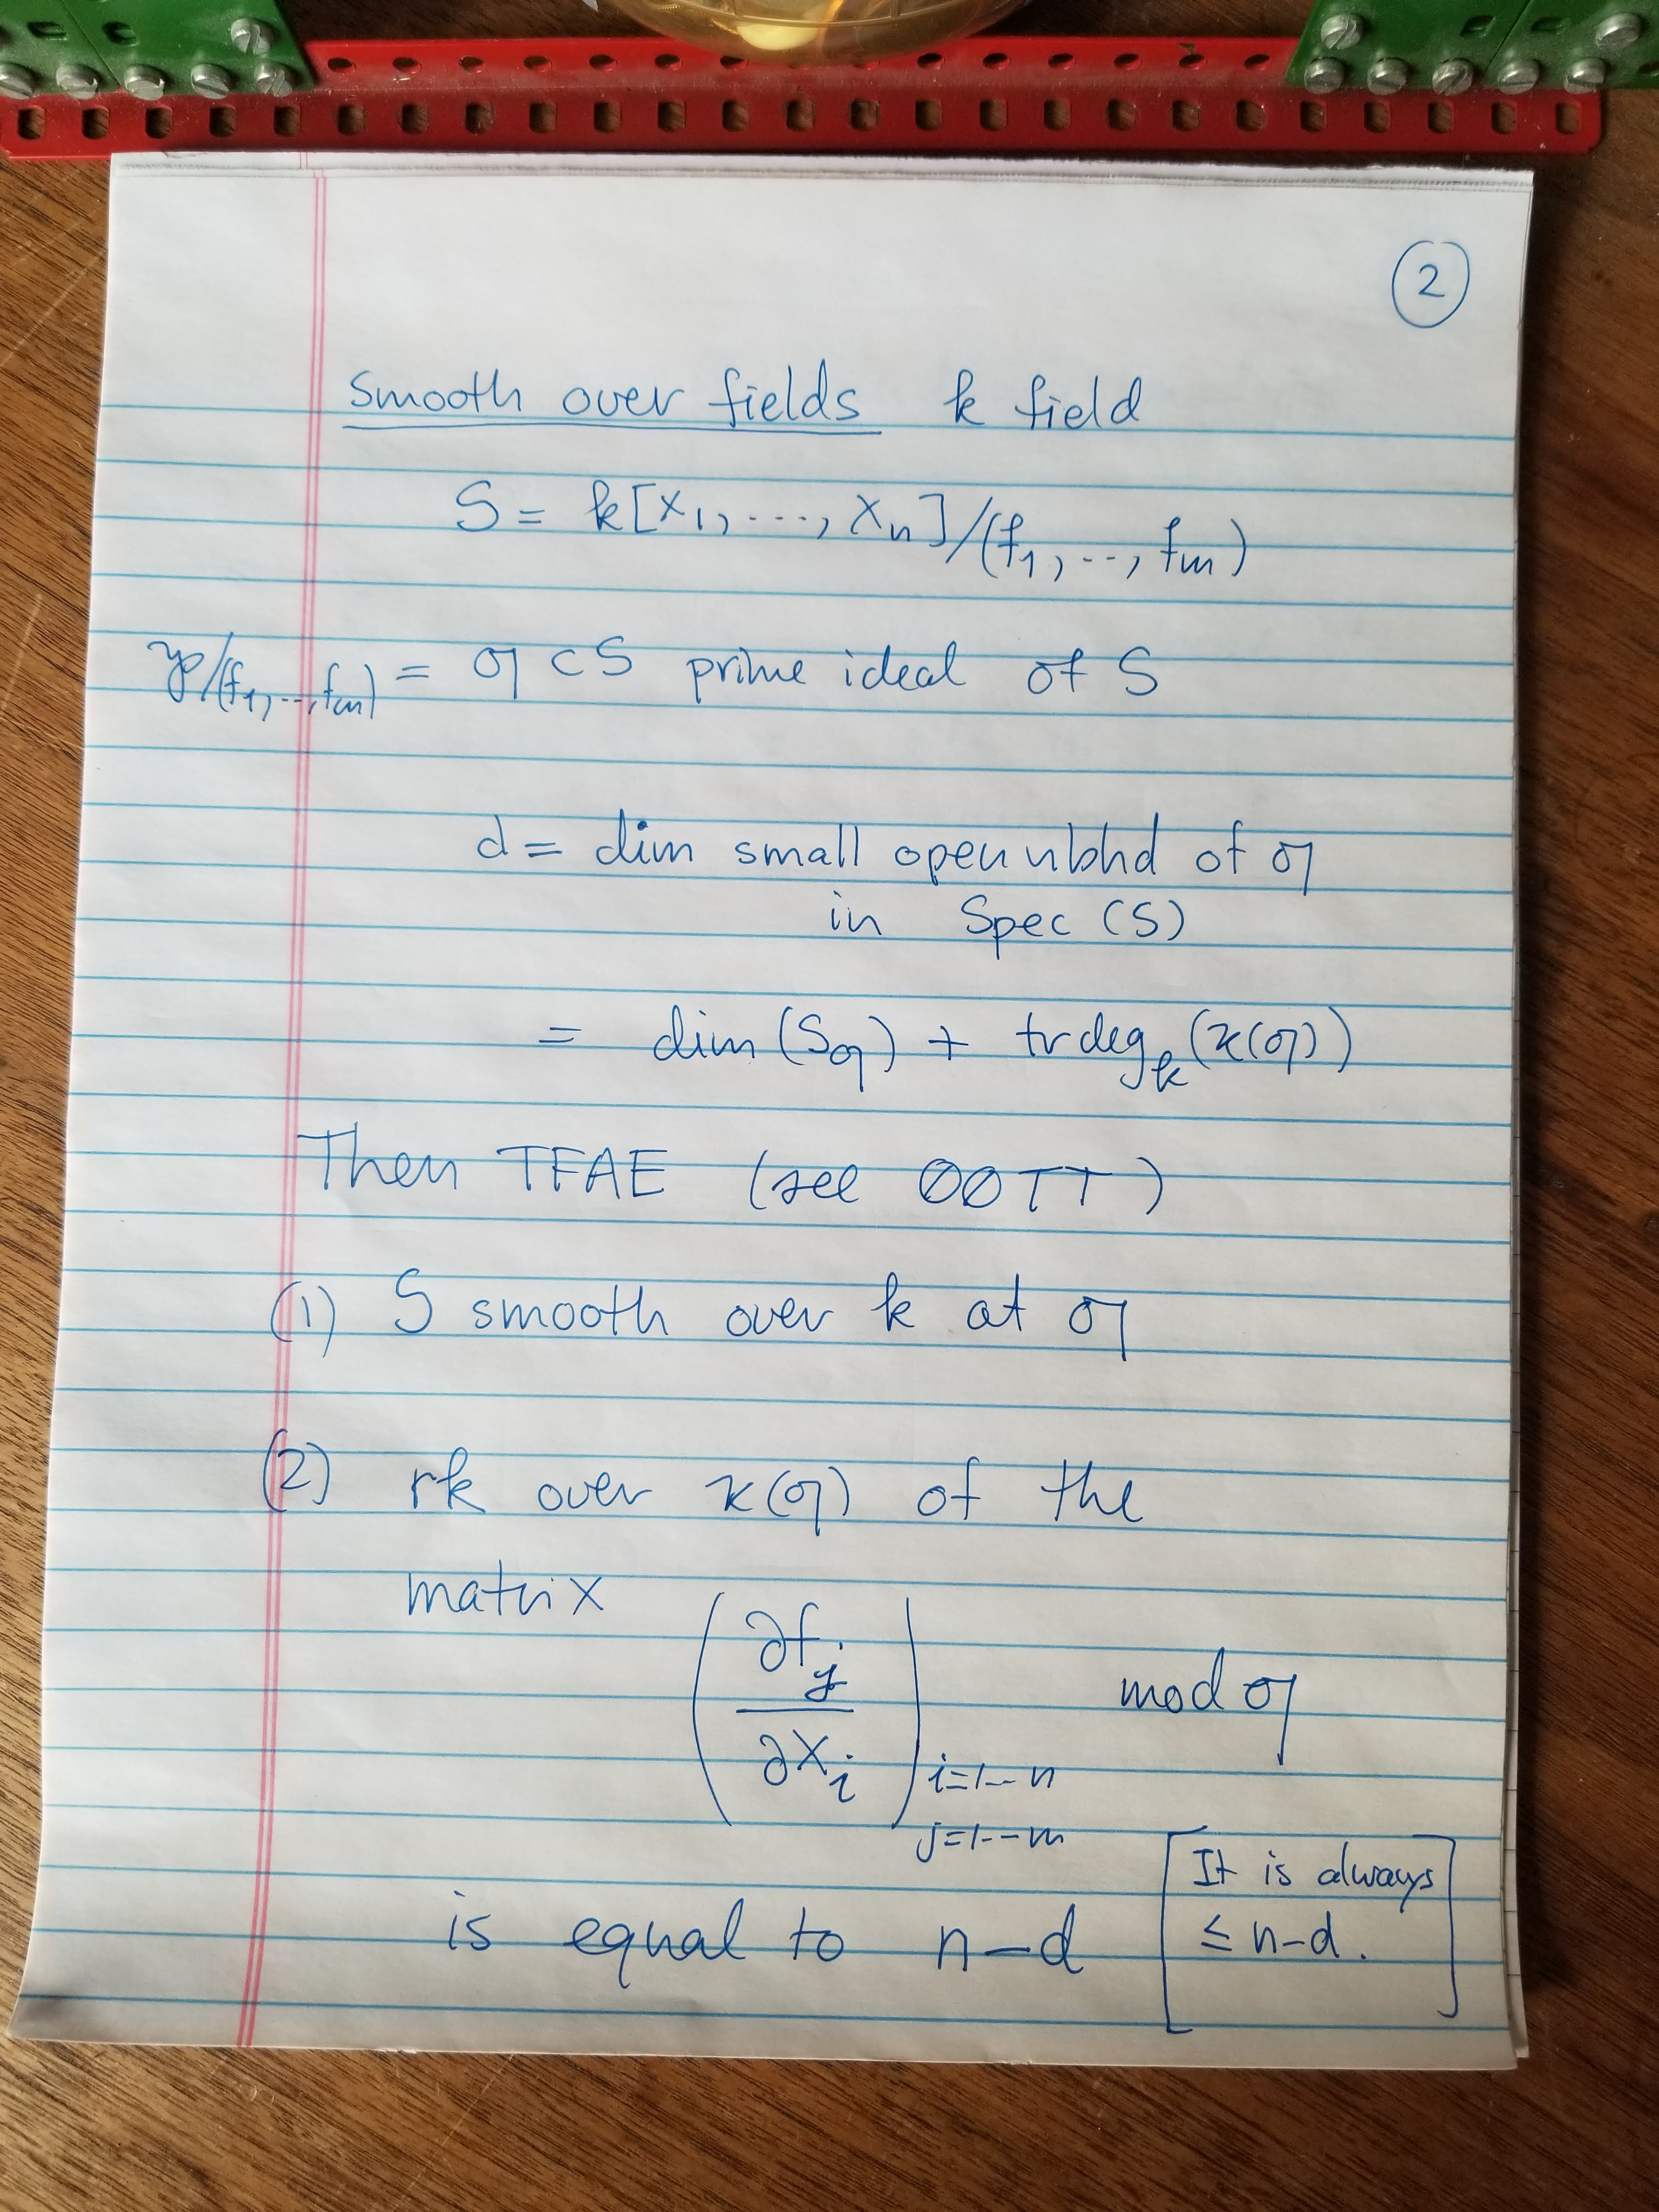 2
Smooth over fields k field
S = k[x₁, ..., xₙ]/(f₁, .., fₘ)
𝔭/(f₁, .., fₘ) = 𝔮 ⊂ S prime ideal of S
d = dim small open nbhd of 𝔮
in Spec (S)
= dim(S_𝔮) + trdeg_k(κ(𝔮))
Then TFAE (see 00TT)
(1) S smooth over k at 𝔮
(2) rk over κ(𝔮) of the
matrix (∂f_j/∂x_i) i=1--n j=1--m mod 𝔮
is equal to n-d [It is always
≤ n-d.]